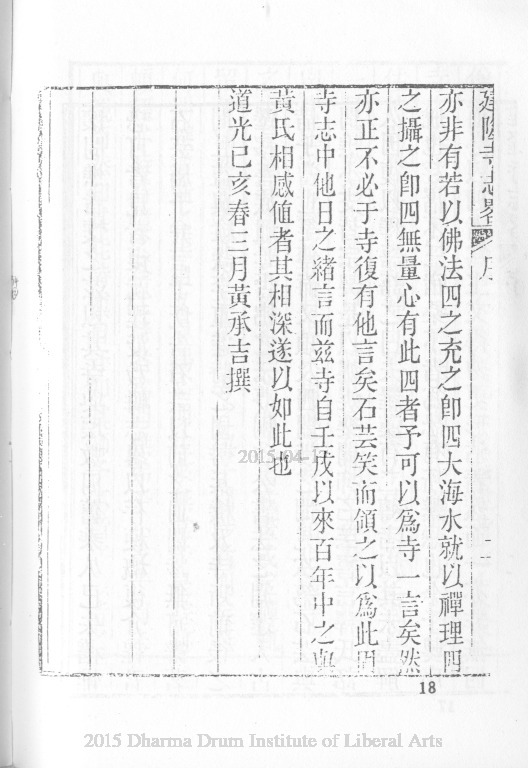 建隆寺志畧 序 二
亦非有若以佛法四之充之卽四大海水就以禪理四
之攝之卽四無量心有此四者予可以爲寺一言矣然
亦正不必于寺復有他言矣石芸笑而頷之以爲此固
寺志中他日之緒言而茲寺自壬戌以來百年中之與
黃氏相感値者其相深遂以如此也
道光己亥春三月黃承吉撰
18
2015-04-1
2015 Dharma Drum Institute of Liberal Arts